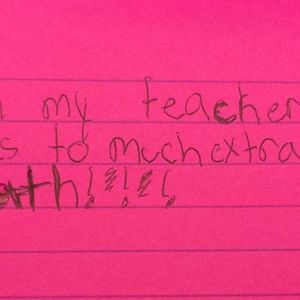 my teacher
to much extra
ath!!!!!